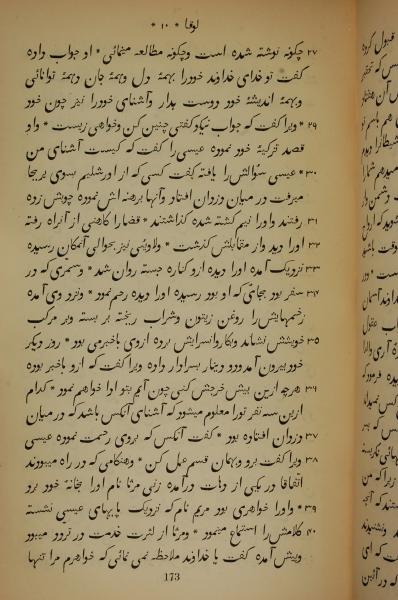 لوقا * ۱۰ *
۲۷ چگونه نوشته شده است وچگونه مطالعه مینمائی * او جواب داده
گفت تو خدای خداوند خودرا بهمهٔ دل وهمهٔ جان وهمهٔ توانائی
وبهمهٔ اندیشهٔ خود دوست بدار وآشنای خودرا نیز چون خود
۲۹ * ویرا گفت که جواب نیکو گفتی چنین کن وخواهی زیست * واو
قصد تزکیهٔ خود نموده عیسی را گفت که کیست آشنای من
۳۰ * عیسی سؤالش را یافته گفت کسی که از اورشلیم بسوی یریحا
میرفت در میان دزدان افتاد وآنها برهنه اش نموده چوبش زده
رفتند واورا نیم کشته شده گذاشتند * قضارا کاهنی از آنراه رفته
۳۲ اورا دید واز مقابلش گذشت * ولاویئی نیز بحوالی آنمکان رسیده
۳۳ نزدیک آمده اورا دیده ازو کناره جسته روان شد * وسمری که در
۳۴ سفر بود بجائی که او بود رسیده اورا دیده رحم نمود * ونزد وی آمده
زخمهایش را روغن زیتون وشراب ریخته بر بسته وبر مرکب
۳۵ خویشش نشاند وبکاروانسرایش برده ازوی باخبر می بود * روز دیگر
خود بیرون آمد ودو دینار بسرادار داده ویرا گفت که ازو باخبر بوده
۳۶ هرچه ازین بیش خرجش کنی چون آیم بتو ادا خواهم نمود * کدام
ازین سه نفر تورا معلوم میشود که آشنای آنکس باشد که در میان
۳۷ دزدان افتاده بود * گفت آنکس که بروی رحمت نموده عیسی
۳۸ ویرا گفت برو وبهمان قسم عمل کن * وهنگامی که در راه میبودند
اتفاقا در یکی از دهات درآمده زنی مرثا نام اورا بخانهٔ خود برد
۳۹ * واورا خواهری بود مریم نام که نزدیک پایهای عیسی نشسته
۴۰ کلامش را استماع مینمود * ومرثا از کثرت خدمت در تردد میبود
وپیش آمده گفت یا خداوند ملاحظه نمی نمائی که خواهرم مرا تنها
173